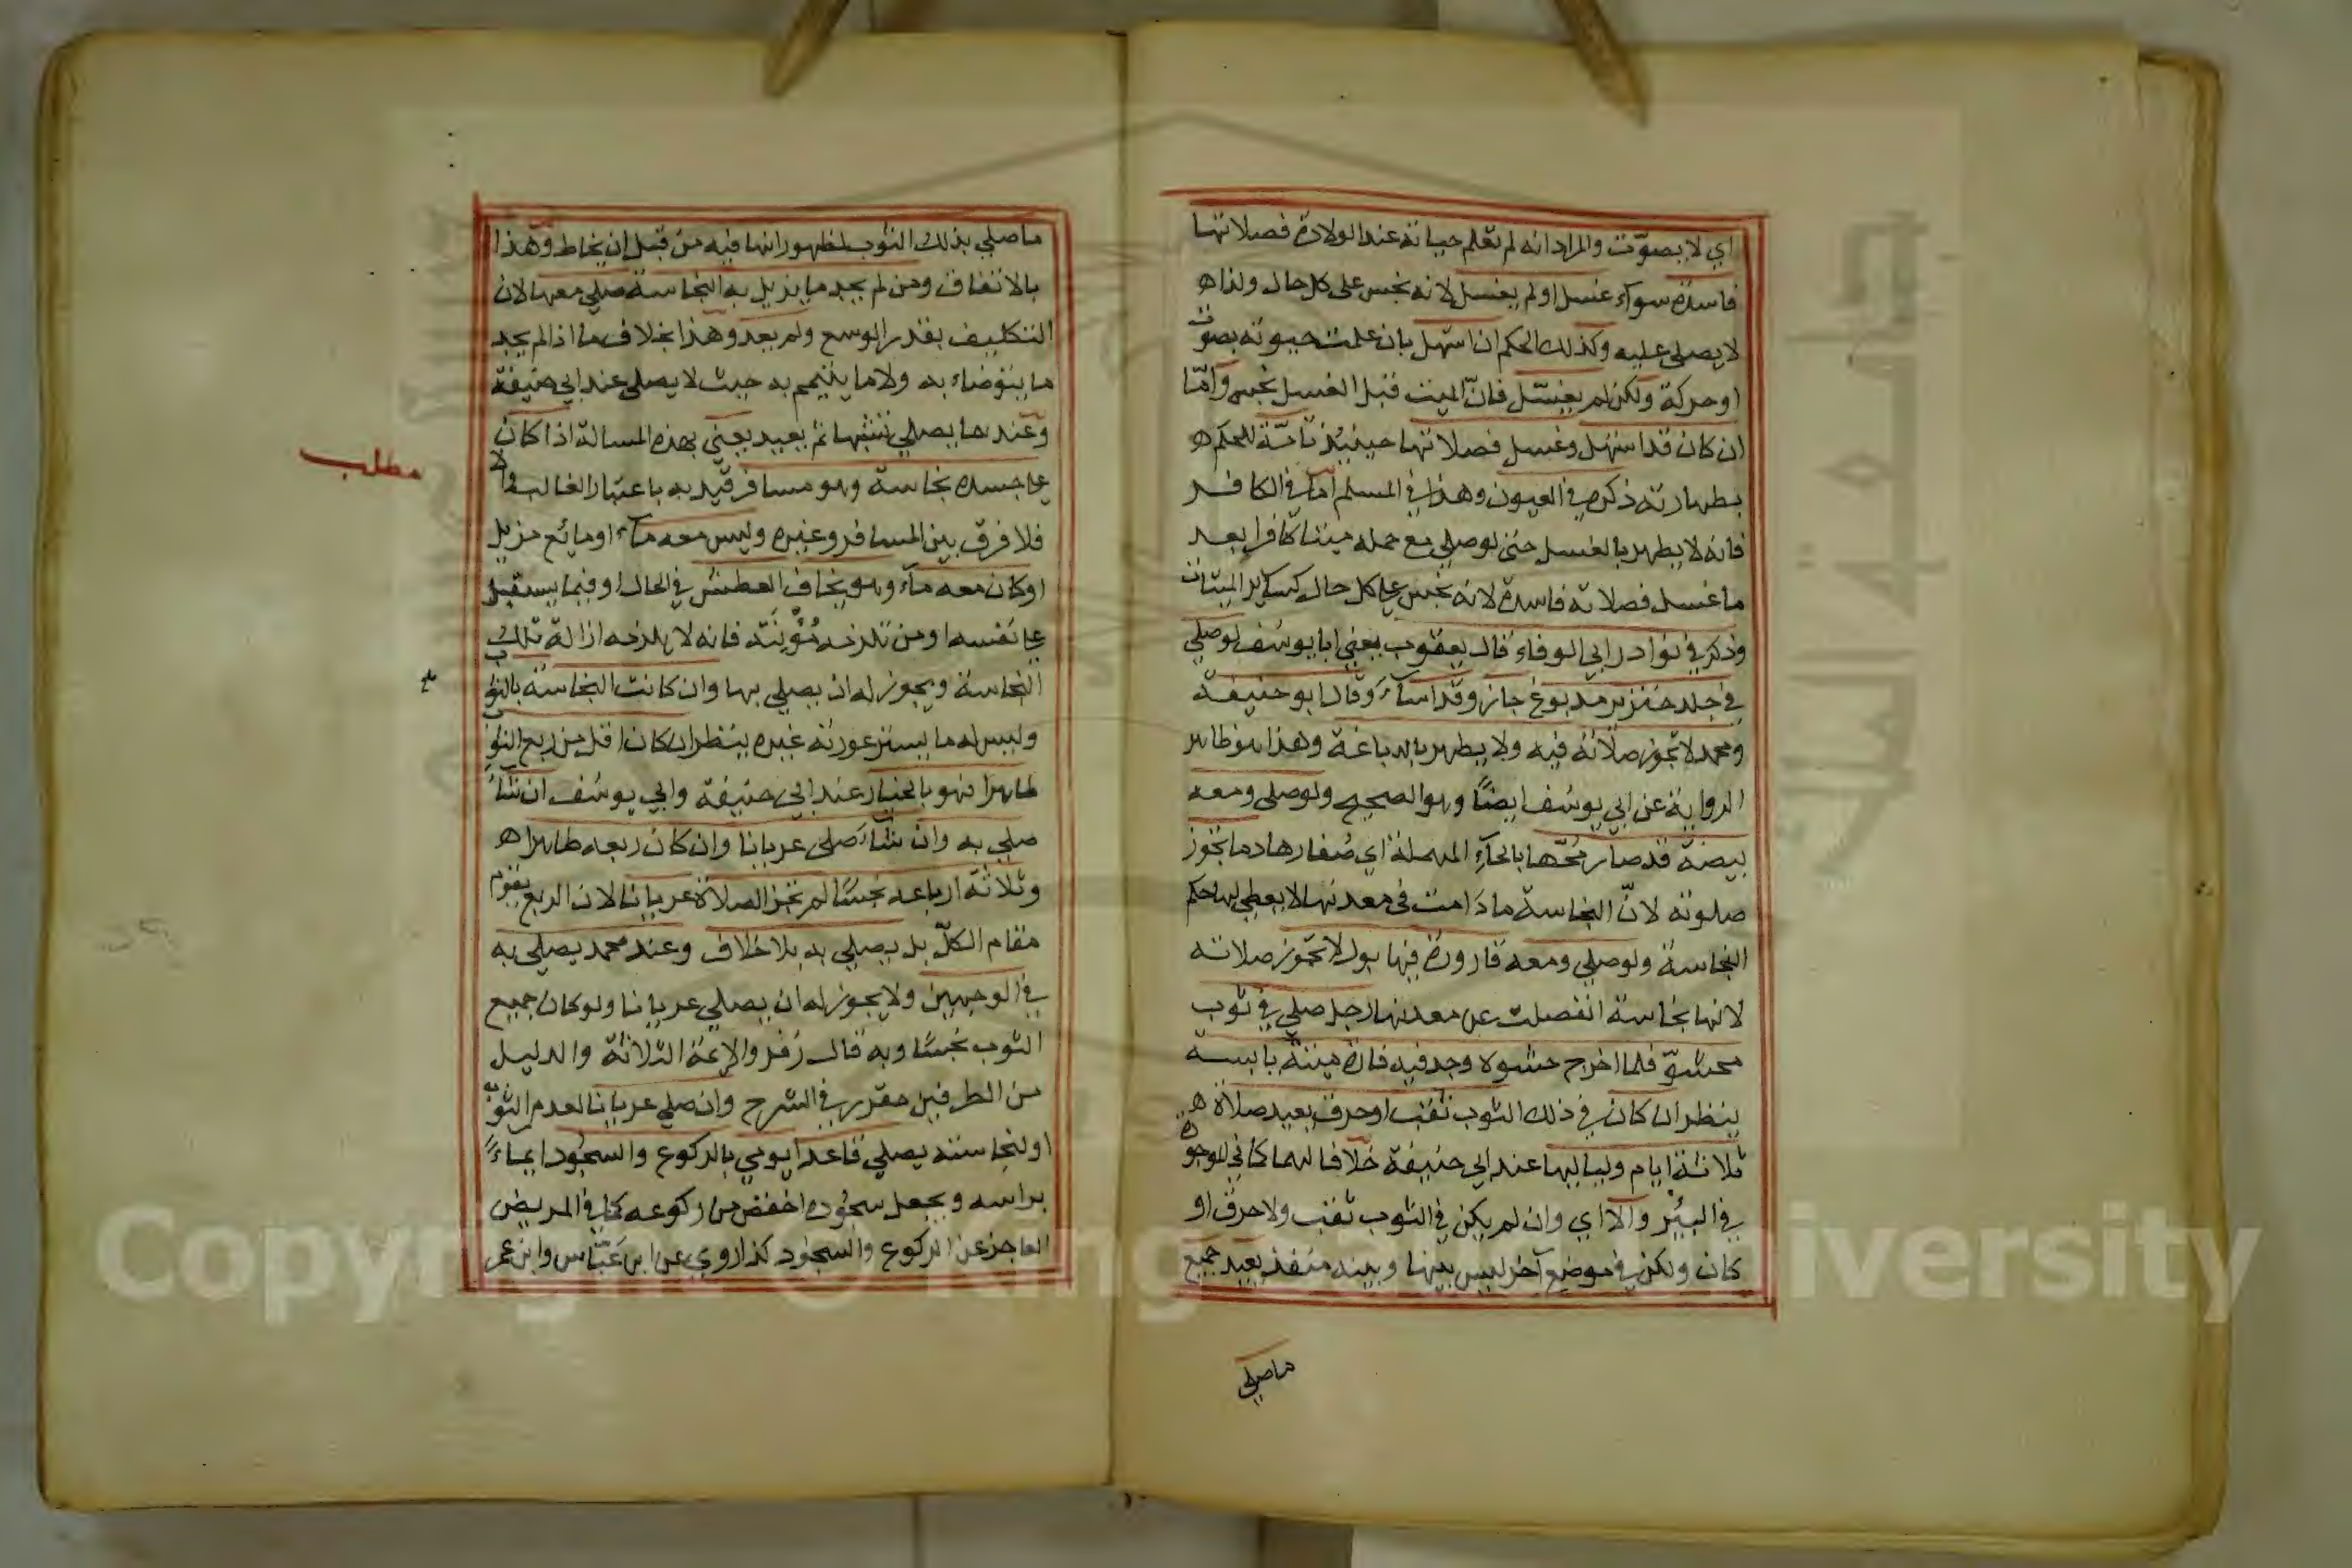 اي لا يصوّت والمراد انه لم تعلم حياته عند الولادة فصلاتها
فاسدة سوآء غسل او لم يغسل لانه نجس على كل حال ولذا ه
لا يصلى عليه وكذلك الحكم ان استهل بان علمت حيوته بصوت
او حركة ولكن لم يغسّل فانّ الميت قبل الغسل نجس وأمّا
ان كان قد استهل وغسل فصلاتها حينئذ تامّة للحكم ه
بطهارته ذكره في العيون وهذا في المسلم اما في الكافر
فانه لا يطهر بالغسل حتى لو صلي مع حمله ميتا كافرا بعد
ما غسل فصلاته فاسدة لانه نجس على كل حال كساير الميتات
وذكر في نوادر ابي الوفاء قال يعقوب يعني ابا يوسف لو صلي
في جلد خنزير مدبوغ جاز وقد اسآء وقال ابو حنيفة
ومحمد لا تجوز صلاته فيه ولا يطهر بالدباغة وهذا هو ظاهر
الرواية عن ابي يوسف ايضًا وهو الصحيح ولو صلى ومعه
بيضة قد صار مُحّها بالحآء المهملة اي صُفارها دما تجوز
صلوته لانّ النجاسة مادَامت في معدنها لا يعطى لها حكم
النجاسة ولو صلي ومعه قارورة فيها بول لا تجوز صلاته
لانها نجاسة انفصلت عن معدنها رجل صلي في ثوب
محشوّ فلما اخرج حشوه وجد فيه فارة ميتة يابسة
ينظر ان كان في ذلك الثوب ثقب او خرق يعيد صلاة ه
ثلاثة ايام ولياليها عند ابي حنيفة خلافا لهما كما في الموجودة
في البئر والّا اي وان لم يكن في الثوب ثقب ولا خرق او
كان ولكن في موضع آخر ليس بينها وبينه منفذ يعيد جميع
ماصلي
ما صلي بذلك الثوب لظهور انها فيه من قبل ان يخاط وهذا
بالاتفاق ومن لم يجد ما يزيل به النجاسة صلي معها لان
التكليف بقدر الوسع ولم يعد وهذا بخلاف ما اذا لم يجد
ما يتوضاء به ولا ما يتيمم به حيث لا يصلي عند ابي حنيفة
وعندهما يصلي تشبها ثم يعيد يعني بهذه المسالة اذا كان
على جسده نجاسة وهو مسافر قيد به باعتبار الغالب والا
فلا فرق بين المسافر وغيره وليس معه مآء او مائع مزيل
او كان معه مآء وهو يخاف العطش في الحال او فيما يستقبل
على نفسه او من تلزمه مُؤنَته فانه لا يلزمه ازالة تلك
النجاسة ويجوز له ان يصلي بها وان كانت النجاسة بالثوب
وليس له ما يستر عورته غيره ينظر ان كان اقل من ربع الثوب
طاهرا فهو بالخيار عند ابي حنيفة وابي يوسف ان شآءَ
صلي به وان شآءَ صلى عريانا وان كان ربعه طاهرا ه
وثلاثة ارباعه نجسًا لم تجز الصلاة عريانا لان الربع يقوم
مقام الكلّ بل يصلي به بلا خلاف وعند محمد يصلي به
في الوجهين ولا يجوز له ان يصلي عريانا ولو كان جميع
الثوب نجسًا وبه قال زفر والائمة الثلاثة والدليل
من الطرفين مقرر في الشرح وان صلي عريانا لعدم الثوب
او لنجاسته يصلي قاعدا يومي بالركوع والسجُود ايماءً
براسه ويجعل سجُوده اخفض من ركوعه كما في المريض
العاجز عن الركوع والسجود كذا روي عن ابن عَبّاس وابن عمر
مطلب
Copyright © King Saud University